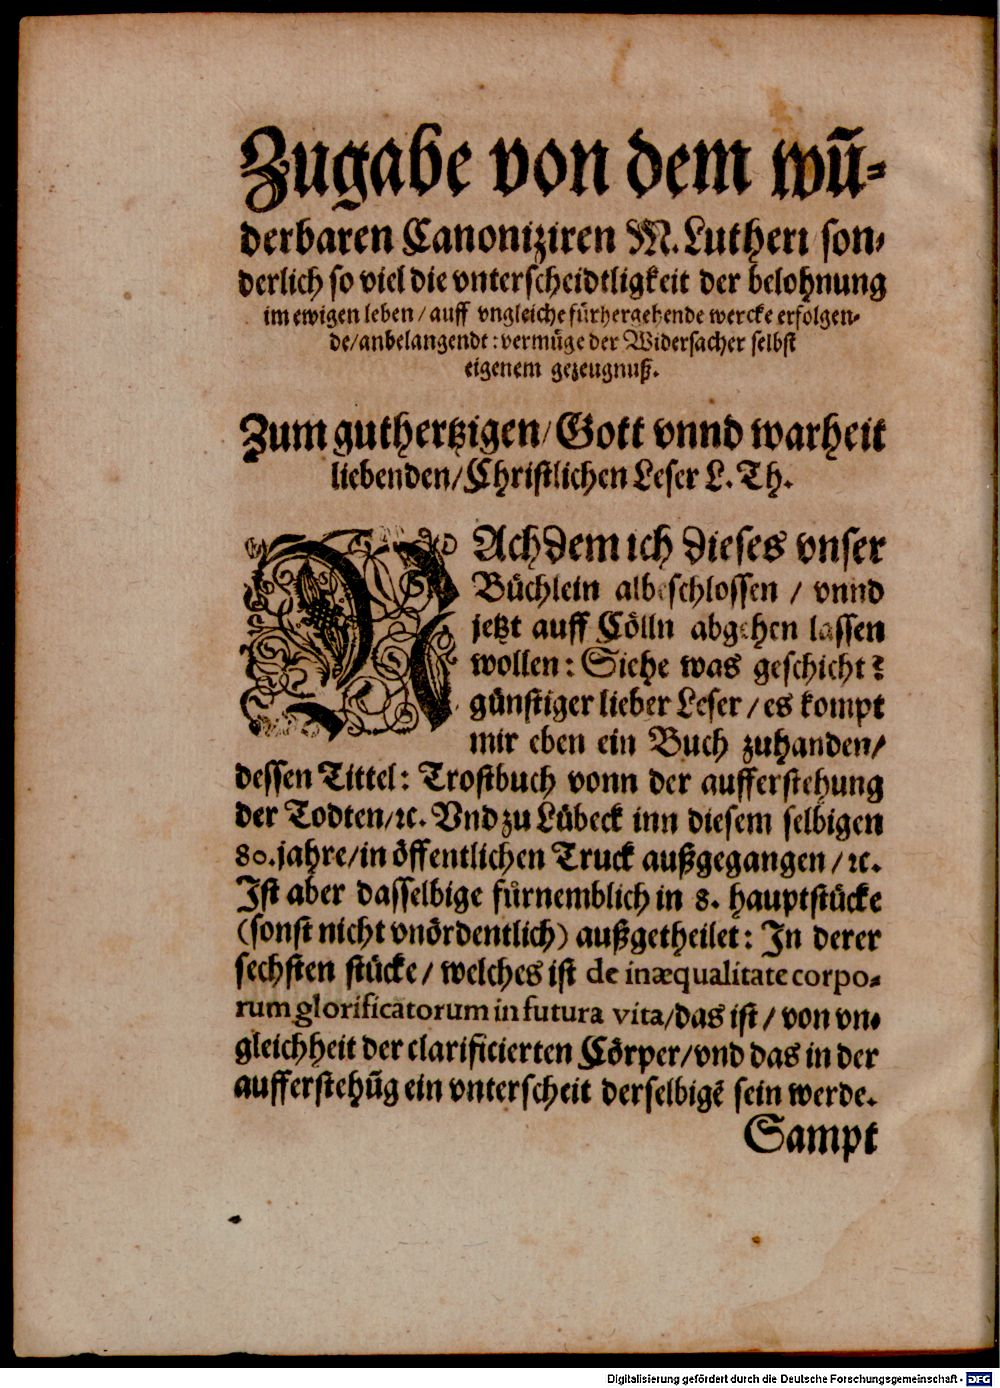 Zugabe von dem wū-
derbaren Canoniziren M. Lutheri son-
derlich so viel die vnterscheidtligkeit der belohnung
im ewigen leben / auff vngleiche fürhergehende wercke erfolgen-
de / anbelangendt : vermüge der Widersacher selbst
eigenem gezeugnuß.
Zum guthertzigen / Gott vnnd warheit
liebenden / Christlichen Leser L. Th.
NAchdem ich dieses vnser
Büchlein albeschlossen / vnnd
jetzt auff Cölln abgehen lassen
wollen : Siehe was geschicht?
günstiger lieber Leser / es kompt
mir eben ein Buch zuhanden /
dessen Tittel : Trostbuch vonn der aufferstehung
der Todten / ꝛc. Vnd zu Lübeck inn diesem selbigen
80. jahre / in öffentlichen Truck außgegangen / ꝛc.
Ist aber dasselbige fürnemblich in 8. hauptstücke
(sonst nicht vnördentlich) außgetheilet : In derer
sechsten stücke / welches ist de inæqualitate corpo-
rum glorificatorum in futura vita / das ist / von vn-
gleichheit der clarificierten Cörper / vnd das in der
aufferstehūg ein vnterscheit derselbigē sein werde.
Sampt
Digitalisierung gefördert durch die Deutsche Forschungsgemeinschaft - DFG